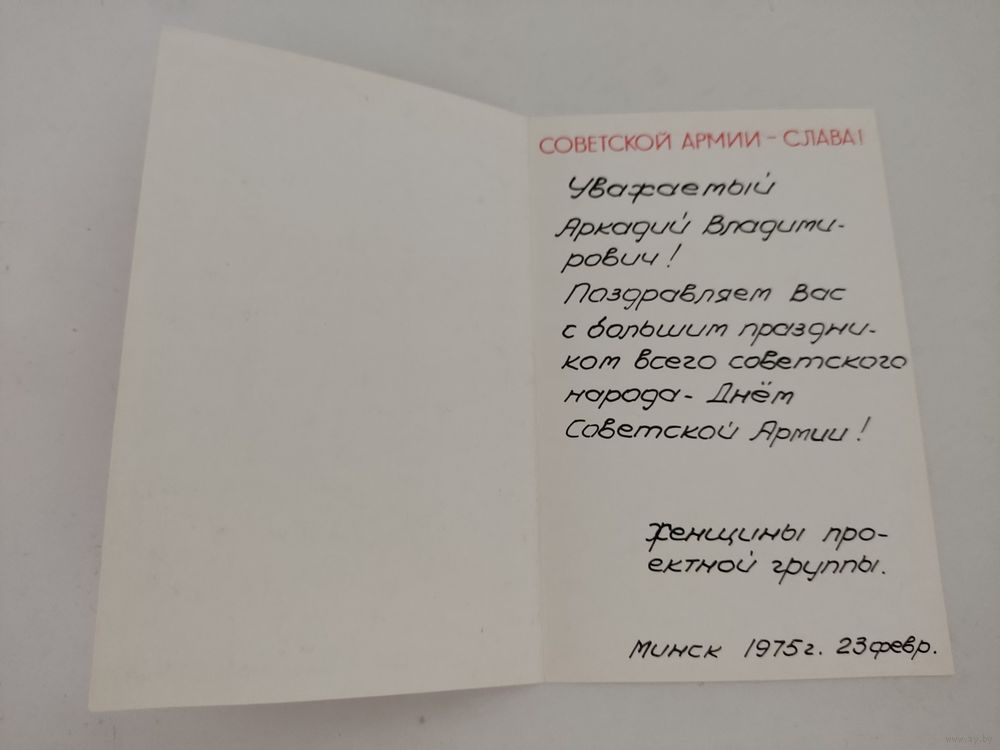 СОВЕТСКОЙ АРМИИ - СЛАВА!
Уважаемый
Аркадий Владими-
рович!
Поздравляем Вас
с большим праздни-
ком всего советского
народа - Днём
Советской Армии!
Женщины про-
ектной группы.
Минск 1975г. 23 февр.
www.ay.by